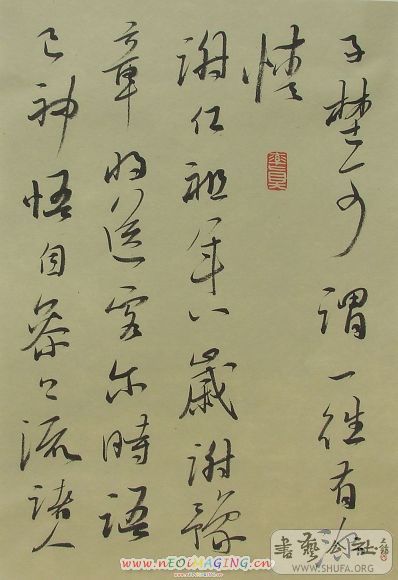 子埜可謂一往有深
情
謝仁祖年八歲謝豫
章將送客尔時語
已神悟自參上流諸人
書藝公社
WWW.SHUFA.ORG
www.nEOiMAGiNG.cn